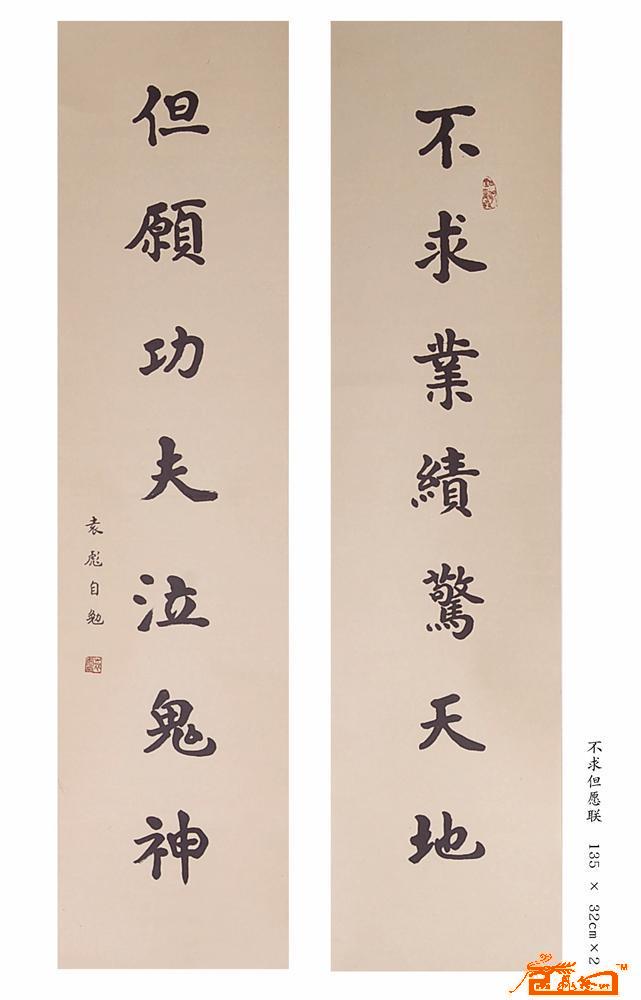 不求業績驚天地
但願功夫泣鬼神
袁彪自勉
不求但愿联 135 × 32cm×2